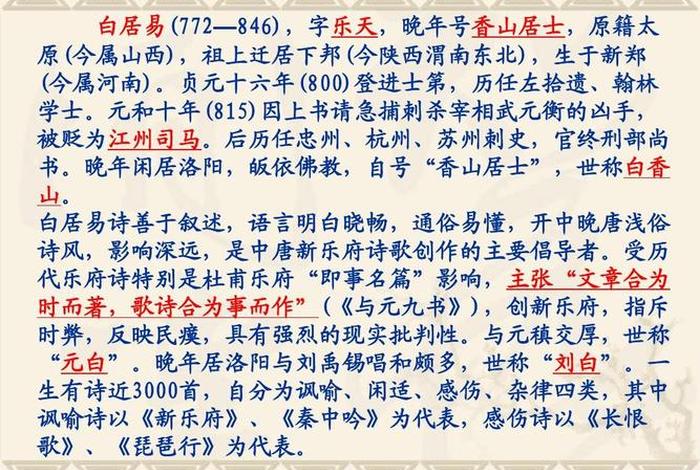 白居易(772—846)，字乐天，晚年号香山居士，原籍太
原(今属山西)，祖上迁居下邽(今陕西渭南东北)，生于新郑
(今属河南)。贞元十六年(800)登进士第，历任左拾遗、翰林
学士。元和十年(815)因上书请急捕刺杀宰相武元衡的凶手，
被贬为江州司马。后历任忠州、杭州、苏州刺史，官终刑部尚
书。晚年闲居洛阳，皈依佛教，自号“香山居士”，世称白香
山。
白居易诗善于叙述，语言明白晓畅，通俗易懂，开中晚唐浅俗
诗风，影响深远，是中唐新乐府诗歌创作的主要倡导者。受历
代乐府诗特别是杜甫乐府“即事名篇”影响，主张“文章合为
时而著，歌诗合为事而作”(《与元九书》)，创新乐府，指斥
时弊，反映民瘼，具有强烈的现实批判性。与元稹交厚，世称
“元白”。晚年居洛阳与刘禹锡唱和颇多，世称“刘白”。一
生有诗近3000首，自分为讽喻、闲适、感伤、杂律四类，其中
讽喻诗以《新乐府》、《秦中吟》为代表，感伤诗以《长恨
歌》、《琵琶行》为代表。